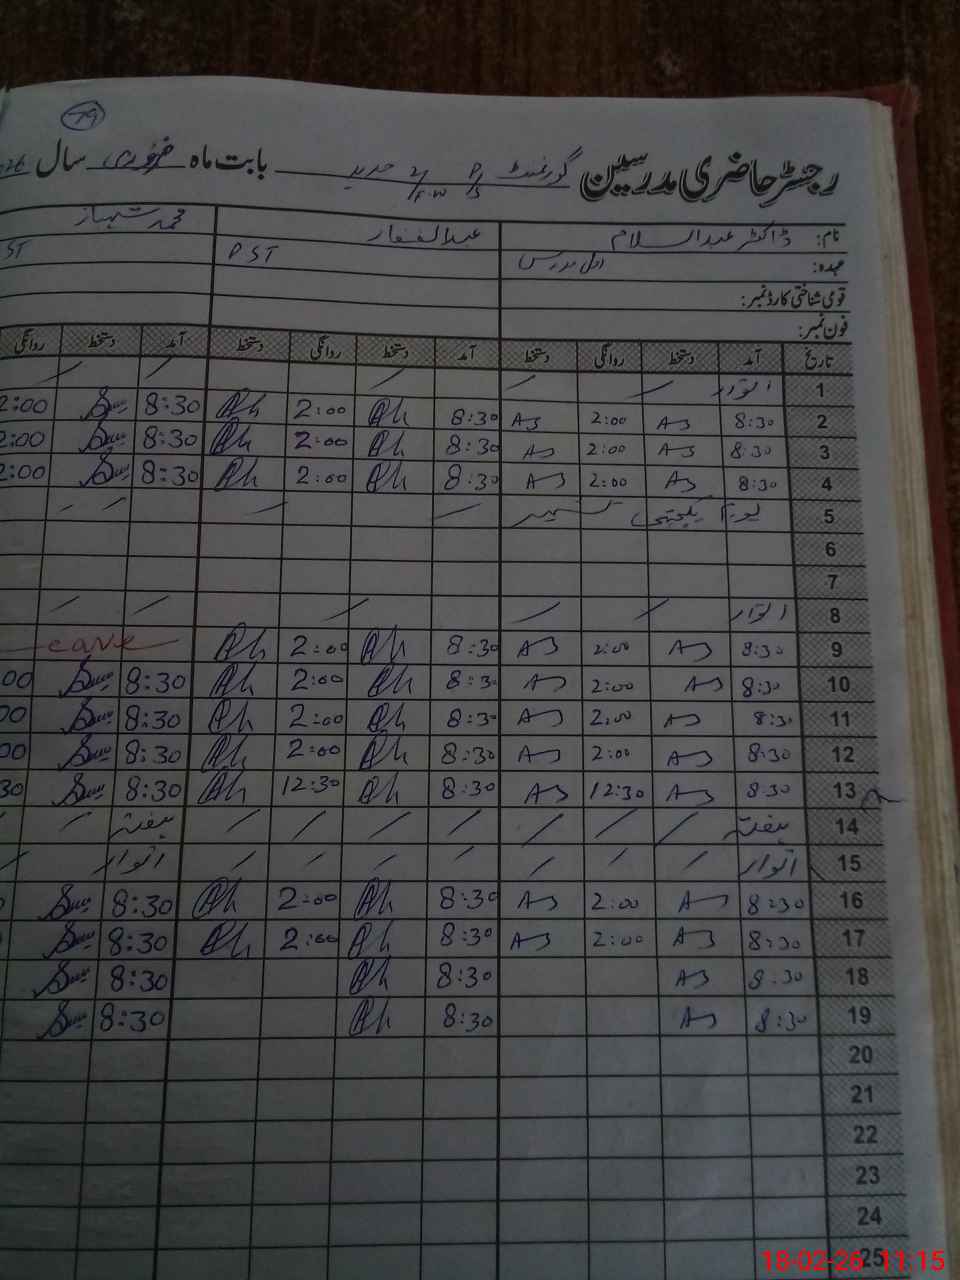 79
رجسٹر حاضری مدرسین گورنمنٹ P/S جدید بابت ماہ فروری سال
نام: ڈاکٹر عبدالسلام عبدالغفار محمد شہباز
عہدہ: اول مدرس PST ST
قومی شناختی کارڈ نمبر:
فون نمبر:
تاریخ آمد دستخط روانگی دستخط آمد دستخط روانگی دستخط آمد دستخط روانگی
1 اتوار / / / / /
2 8:30 AS 2:00 AS 8:30 Ah 2:00 Ah 8:30 2:00
3 8:30 AS 2:00 AS 8:30 Ah 2:00 Ah 8:30 2:00
4 8:30 AS 2:00 AS 8:30 Ah 2:00 Ah 8:30 2:00
5 یوم یکجہتی کشمیر / / / /
6
7
8 اتوار / / / / /
9 8:30 AS 2:00 AS 8:30 Ah 2:00 Ah eave
10 8:30 AS 2:00 AS 8:30 Ah 2:00 Ah 8:30 00
11 8:30 AS 2:00 AS 8:30 Ah 2:00 Ah 8:30 00
12 8:30 AS 2:00 AS 8:30 Ah 2:00 Ah 8:30 00
13 8:30 AS 12:30 AS 8:30 Ah 12:30 Ah 8:30 30
14 ہفتہ / / / / / / / ہفتہ / /
15 اتوار / / / / / / / اتوار / /
16 8:30 AS 2:00 AS 8:30 Ah 2:00 Ah 8:30
17 8:30 AS 2:00 AS 8:30 Ah 2:00 Ah 8:30
18 8:30 AS 8:30 Ah 8:30
19 8:30 AS 8:30 Ah 8:30
20
21
22
23
24
25
18-02-26 11:15